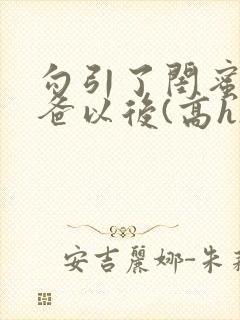 勾引了閨蜜
爸以後(高h
安吉麗娜-朱